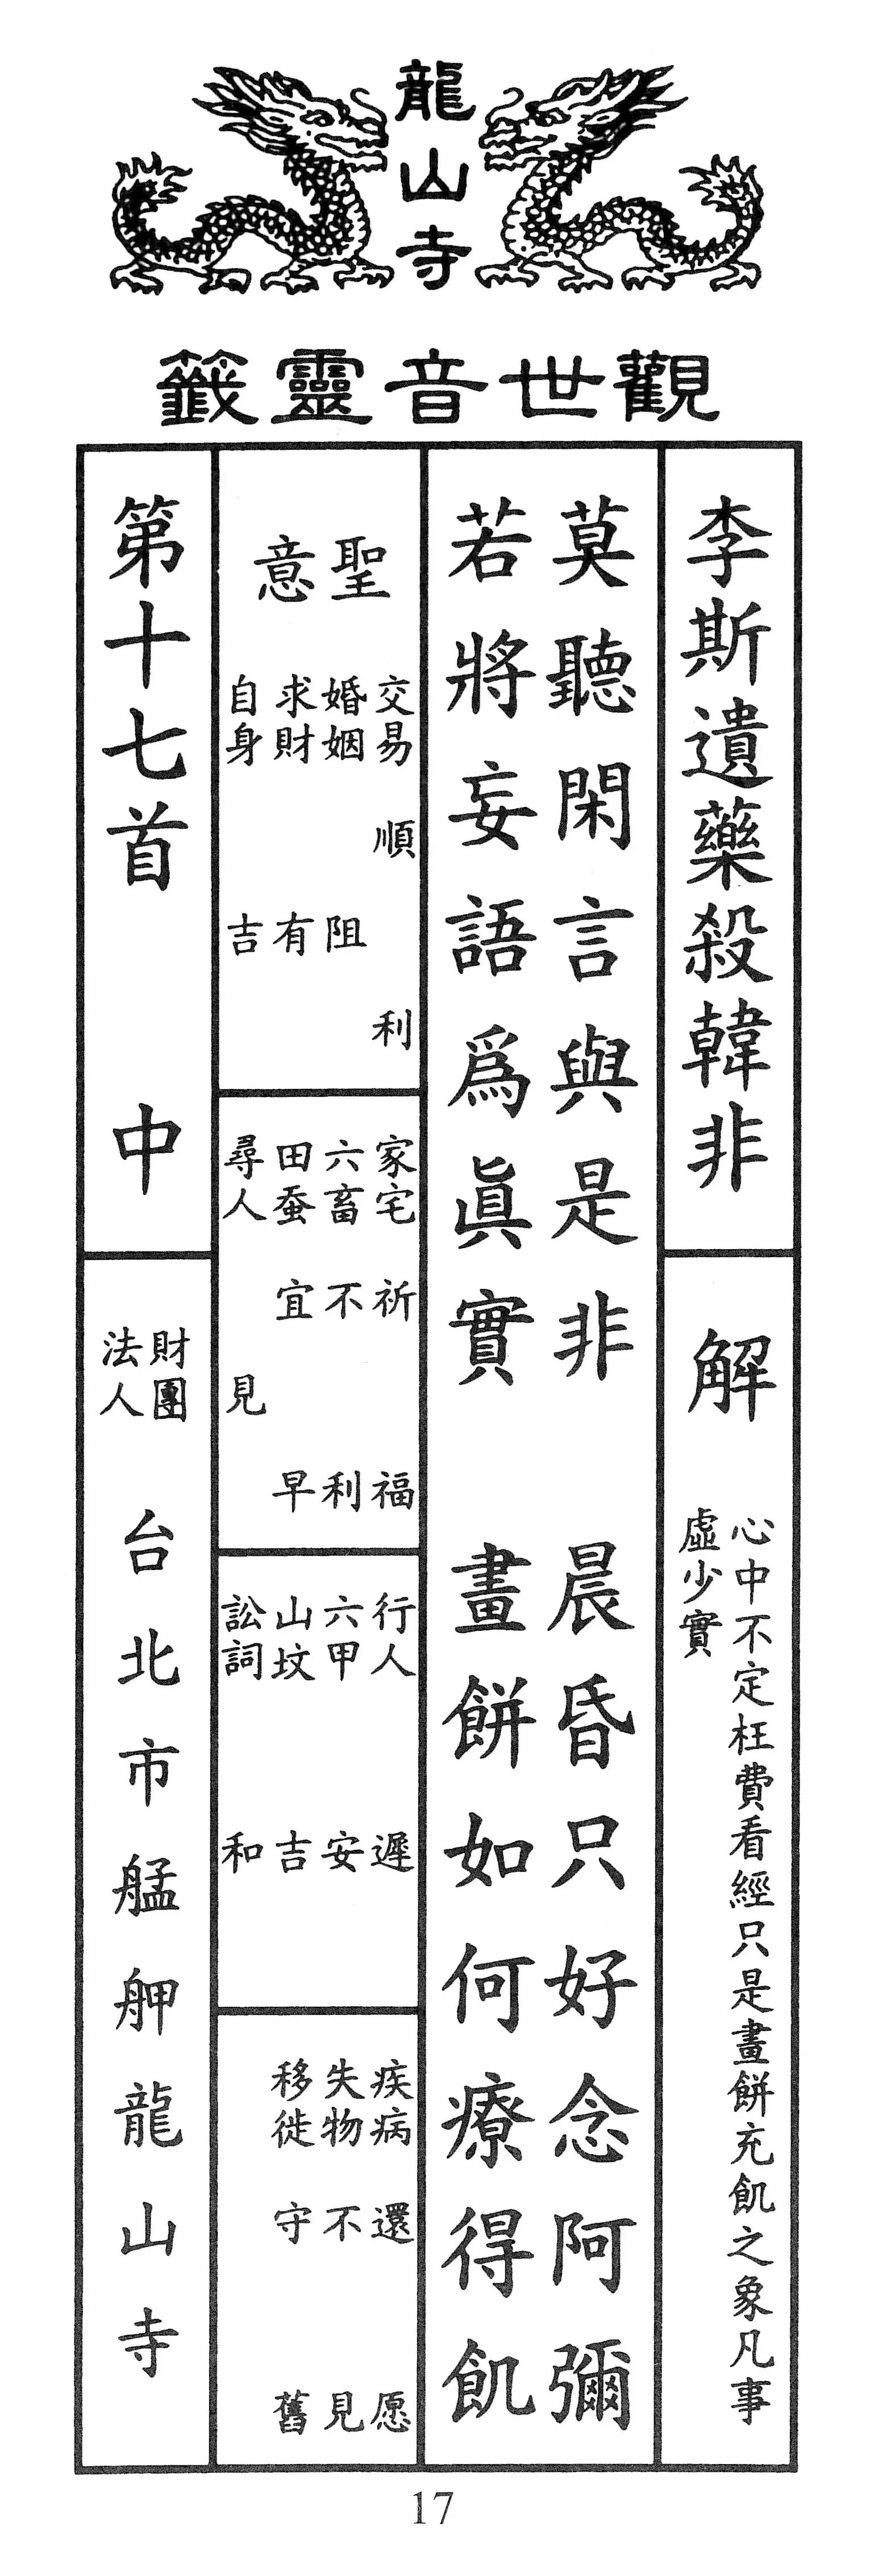 龍山寺
觀世音靈籤
李斯遺藥殺韓非
解
心中不定枉費看經只是畫餅充飢之象凡事
虛少實
莫聽閑言與是非 晨昏只好念阿彌
若將妄語為眞實 畫餅如何療得飢
聖意
交易 順利
婚姻 阻
求財 有
自身 吉
家宅 祈福
六畜 不利
田蚕 宜早
尋人 見
行人 遲
六甲 安
山坟 吉
訟詞 和
疾病 還愿
失物 不見
移徙 守舊
第十七首 中
財團
法人
台北市艋舺龍山寺
17